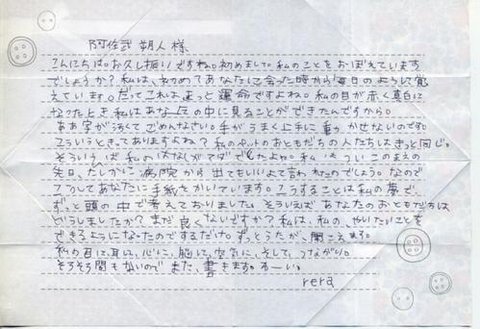 阿佐武朔人様
こんにちは。お久し振りですね。初めまして。私のことをおぼえています
でしょうか?私は、初めてあなたに会った時から毎日のように覚
えています。だってこれはきっと運命ですよね。私の目が赤く真白に
なったとき、私はあなたの中に見ることができたんですから。
ああ字がうるさくてごめんなさい。手がうまく上手に動かせないのです。
こういうときってありますよね?私のペットのおともだちの人たちはきっと同じ。
そういえば私の
先日、たしかに病院から出てもいいよて言われたのでしょう。なので
こうしてあなたに手紙をかいています。こうすることは私の夢で、
ずっと頭の中で考えておりました。そういえばあなたのおともだちは
どうしましたか?まだ良くないですか?私は、私の、やりたいことを
できるようになったのでするだけ。ずっとうたが、聞こえます。
私の目に、耳に、心に、脳に、空気に、そして、つながり。
そろそろ間もないのでまた、書きます。
rera